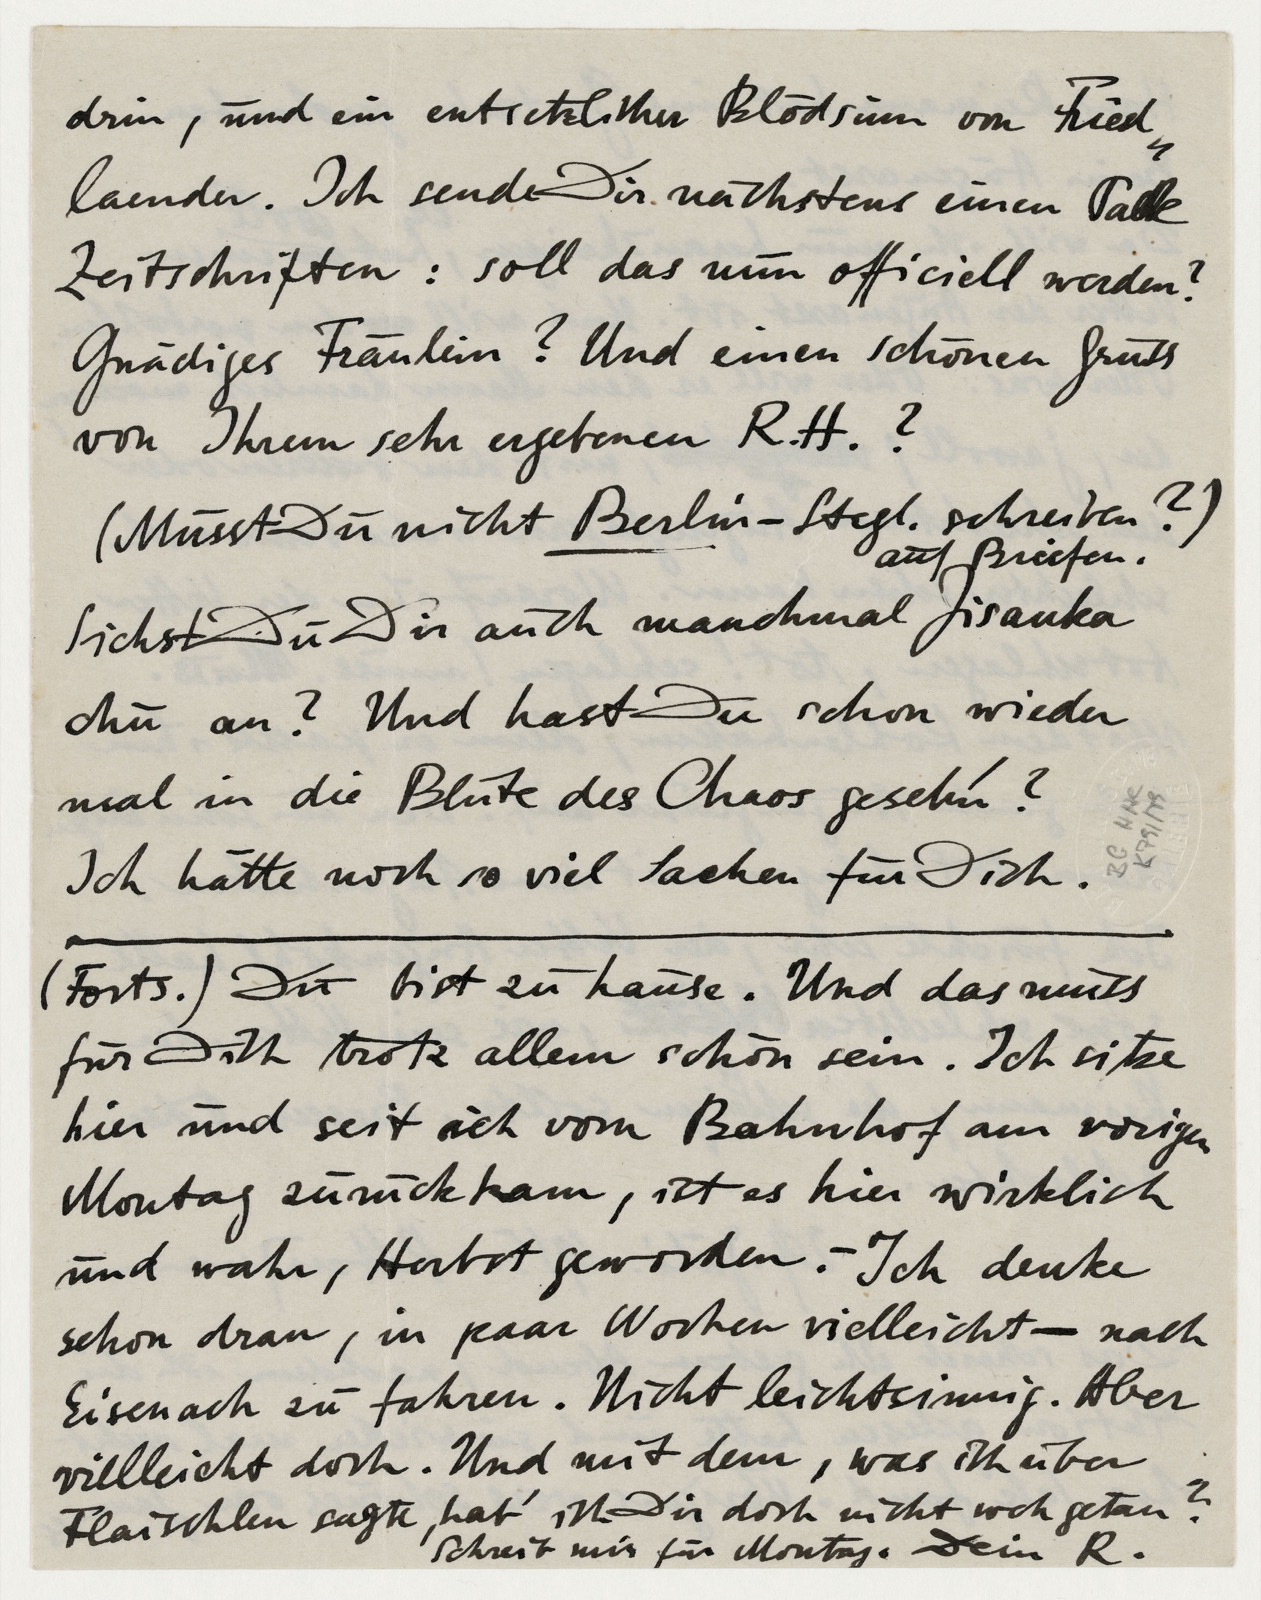 drin, und ein entsetzlicher Blödsinn von Fried„
laender. Ich sende Dir nächstens einen Pack
Zeitschriften: soll das nun officiell werden?
Gnädiges Fräulein? Und einen schönen Gruss
von Ihrem sehr ergebenen R.H.?
(Musst Du nicht Berlin-Stegl. schreiben?)
auf Briefen.
Siehst Du Dir auch manchmal Jisauka
chu an? Und hast Du schon wieder
mal in die Blüte des Chaos geseh'n?
Ich hätte noch so viel Sachen für Dich.
(Forts.) Du bist zu hause. Und das muss
für Dich trotz allem schön sein. Ich sitze
hier und seit ich vom Bahnhof am vorigen
Montag zurückkam, ist es hier wirklich
und wahr, Herbst geworden.- Ich denke
schon dran, in paar Wochen vielleicht — nach
Eisenach zu fahren. Nicht leichtsinnig. Aber
vielleicht doch. Und mit dem, was ich über
Flaischlen sagte, hab' ich Dir doch nicht weh getan?
Schreib mir für Montag. Dein R.
BG HHC
K 791/79